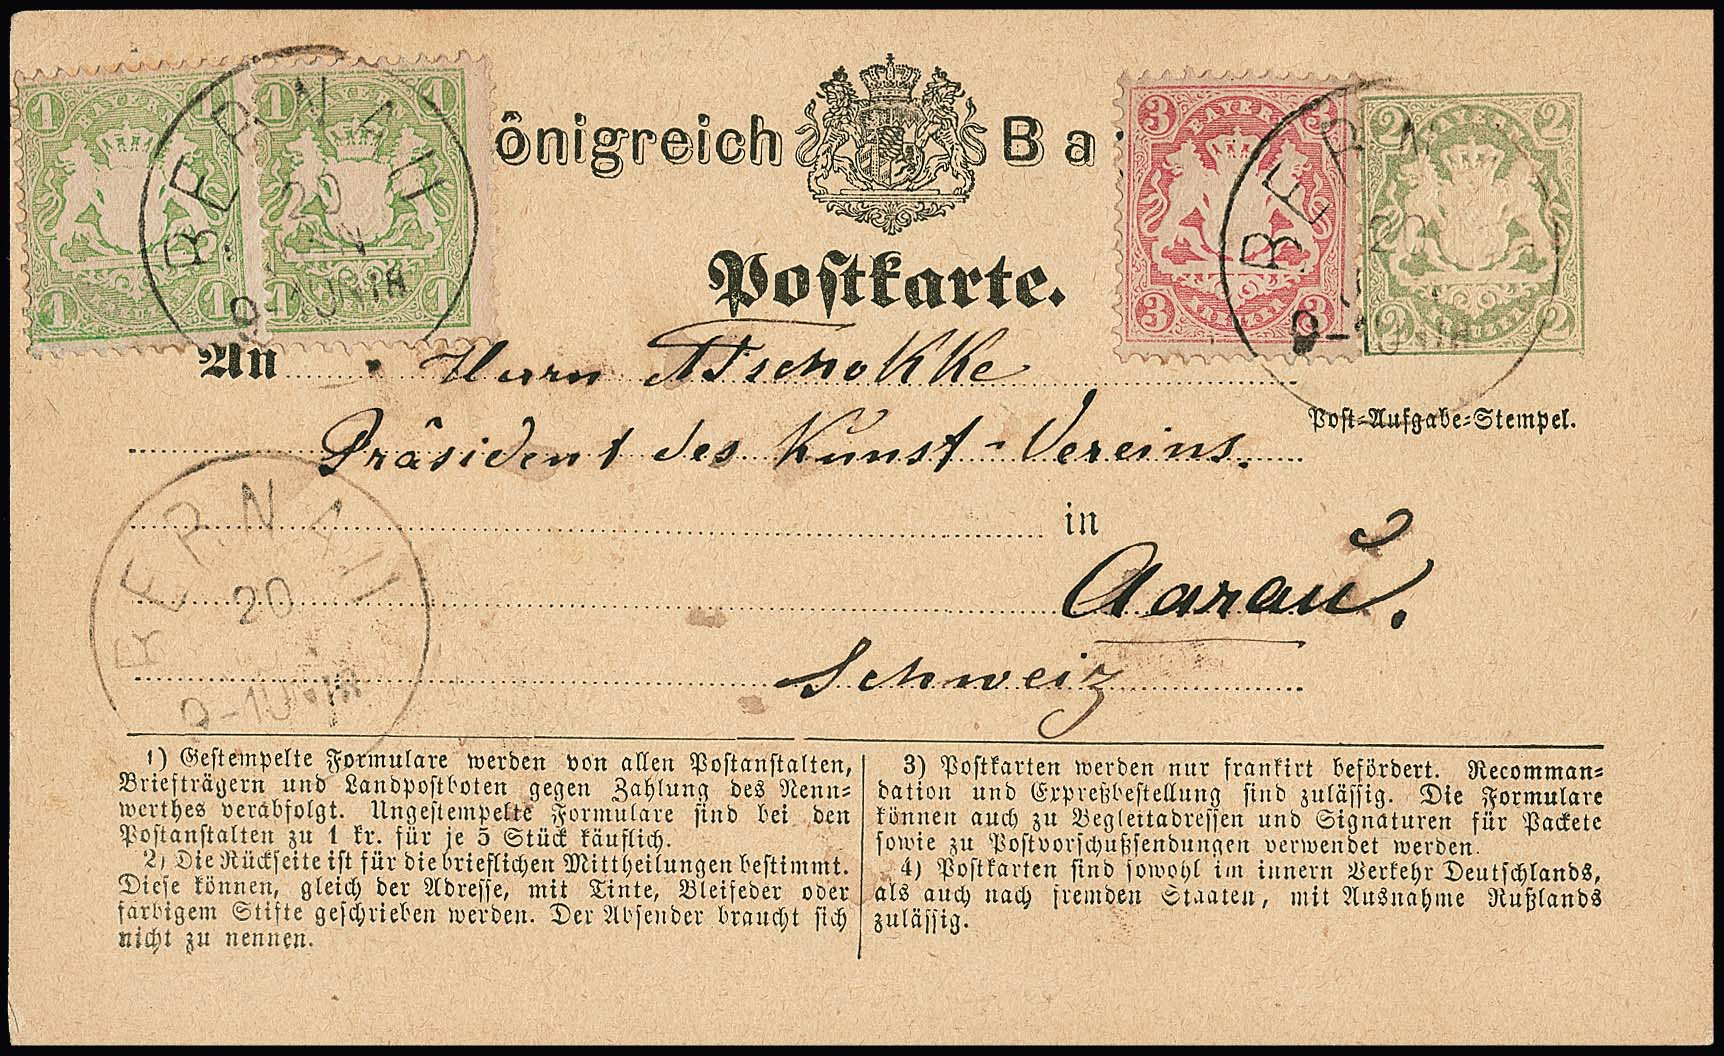 1 1 1 1
BAYERN BAYERN
1 1 1 1
BERNAU
20
9-10 VM
önigreich Ba
3 BAYERN 3
3 KREUZER 3
2 BAYERN 2
2 KREUZER 2
BERN
20
9-10
Postkarte.
An Herrn Tschokke
Post-Aufgabe-Stempel.
Präsident des Kunst-Vereins.
in
Aarau.
Schweiz
BERNAU
20
9-10
1) Gestempelte Formulare werden von allen Postanstalten,
Briefträgern und Landpostboten gegen Zahlung des Nenn-
werthes verabfolgt. Ungestempelte Formulare sind bei den
Postanstalten zu 1 kr. für je 5 Stück käuflich.
2) Die Rückseite ist für die brieflichen Mittheilungen bestimmt.
Diese können, gleich der Adresse, mit Tinte, Bleifeder oder
farbigem Stifte geschrieben werden. Der Absender braucht sich
nicht zu nennen.
3) Postkarten werden nur frankirt befördert. Recomman-
dation und Expreßbestellung sind zulässig. Die Formulare
können auch zu Begleitadressen und Signaturen für Packete
sowie zu Postvorschußsendungen verwendet werden.
4) Postkarten sind sowohl im innern Verkehr Deutschlands,
als auch nach fremden Staaten, mit Ausnahme Rußlands
zulässig.